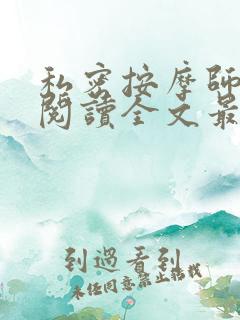 私密按摩師
閱讀全文最
到過看到
未任同意禁止搭載